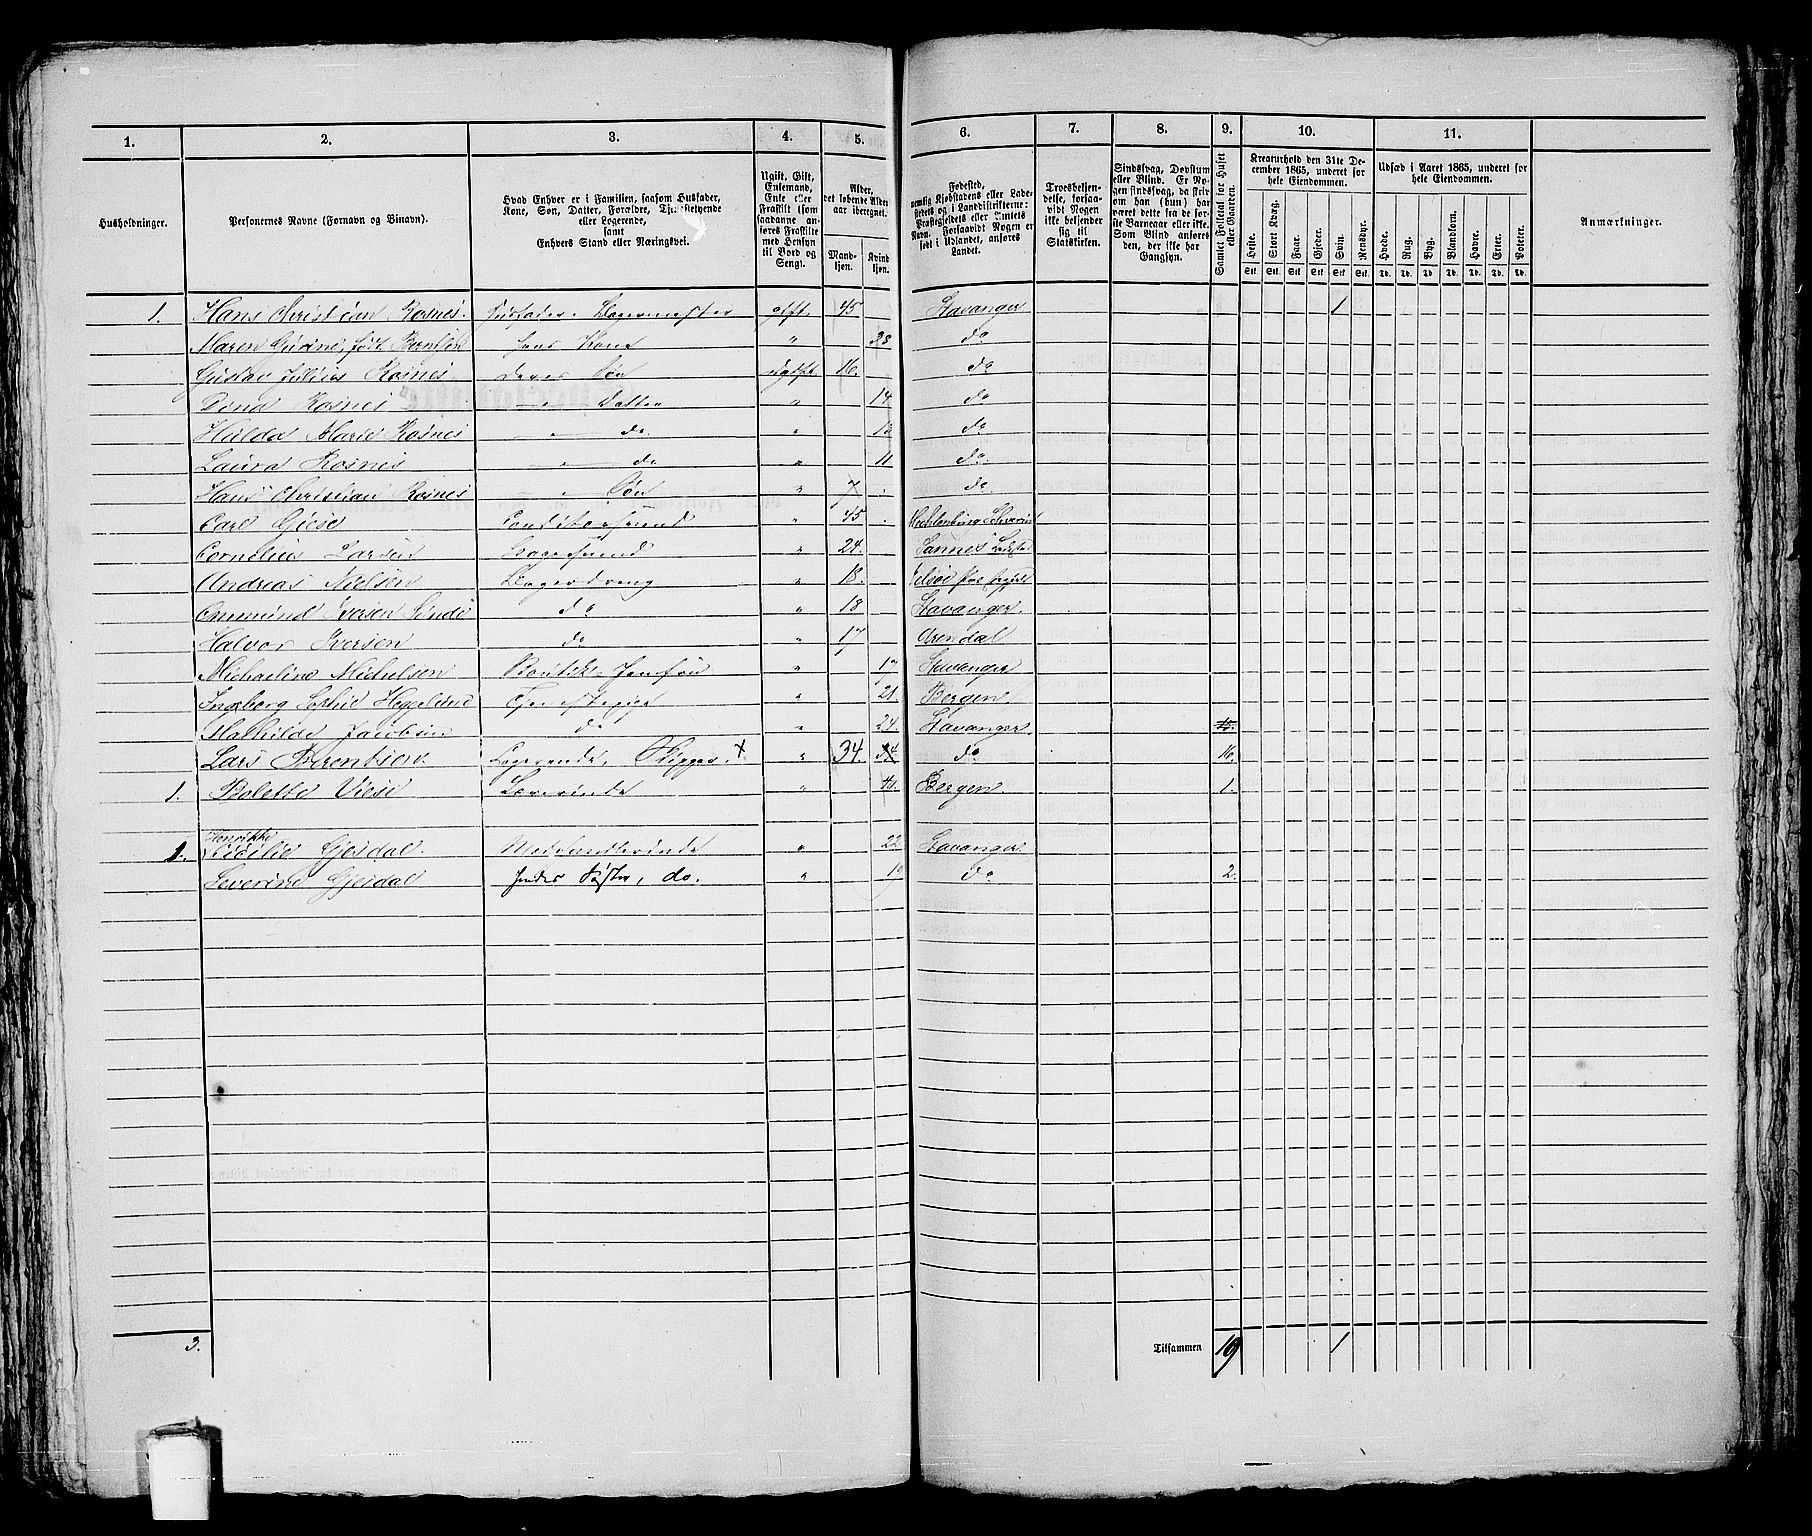 1. 2. 3. 4. 5. 6. 7. 8. 9. 10. 11.
Husholdninger.
Personernes Navne (Fornavn og Binavn).
Hvad Enhver er i Familien, saasom Husfader,
Kone, Søn, Datter, Forældre, Tjenestetyende
eller Logerende,
samt
Enhvers Stand eller Næringsvei.
Ugift, Gift,
Enkemand,
Enke eller
Fraskilt (som
saadanne an-
føres Fraskilte
med Hensyn
til Bord og
Seng).
Alder,
det løbende Alder
aar iberegnet.
Mand-
kjøn.
Kvind
kjøn.
Fødested,
nemlig Kjøbstadens eller Lade-
stedets og i Landdistrikterne:
Præstegjeldets eller Amtets
Navn. Forsaavidt Nogen er
født i Udlandet, anføres
Landet.
Troesbekjen-
delse, forsaa-
vidt Nogen
ikke bekjender
sig til
Statskirken.
Sindssvag, Døvstum
eller Blind. Er No-
gen sindssvag, da skri-
ves om han (hun) har
været dette fra de før-
ste Barneaar eller ikke.
Som Blind anføres
den, der ikke har
Gangsyn.
Samlet Folketal for Huset
eller Gaarden.
Kreaturhold den 31te De-
cember 1865, underet for
hele Eiendommen.
Heste. Stort Kvæg. Faar. Gjeder. Svin. Rensdyr.
Stk. Stk. Stk. Stk. Stk. Stk.
Udsæd i Aaret 1865, underet for
hele Eiendommen.
Hvede. Rug. Byg. Blandkorn. Havre. Erter. Poteter.
Td. Td. Td. Td. Td. Td. Td.
Anmærkninger.
1. Hans Christian Rosnes. Husfader, Bagermester gift. 45 Stavanger 1
Maren Gurine, født Berntsen hans Kone " 38 do
Gustav Julius Rosnes deres Søn ugift 16. do
Dina Rosnes " Datter " 14 do
Hulda Marie Rosnes " do " do
Laura Rosnes " do " 11 do.
Hans Christian Rosnes " Søn " 7 do.
Carl Giese Conditorsvend " 45 Mecklenburg Schwerin
Cornelius Larsen Bagersvend " 24. Sannes Ladested
Andreas Nielsen Bagerdreng " 18.
Ommund Iversen Sunde do " 18 Stavanger.
Halvor Iversen do " 17 Arendal
Michaeline Michelsen Boutik-Jomfru " 17 Stavanger
Ingborg Sophie Hegelund Tjenestepige " 21 Bergen.
Mathilde Jacobsen do " 24 Stavanger 15.
Lars Berentsen Logerende, Skipper. x " 34. 34 do 16.
1. Bolette Wiese Lærerinde " Bergen. 1.
1. Henrikke Cicilie Gjesdal. Modehandlerinde " 22 Stavanger
Severine Gjesdal hendes Søster, do. " 19 do 2.
3.
Tilsammen 19 1